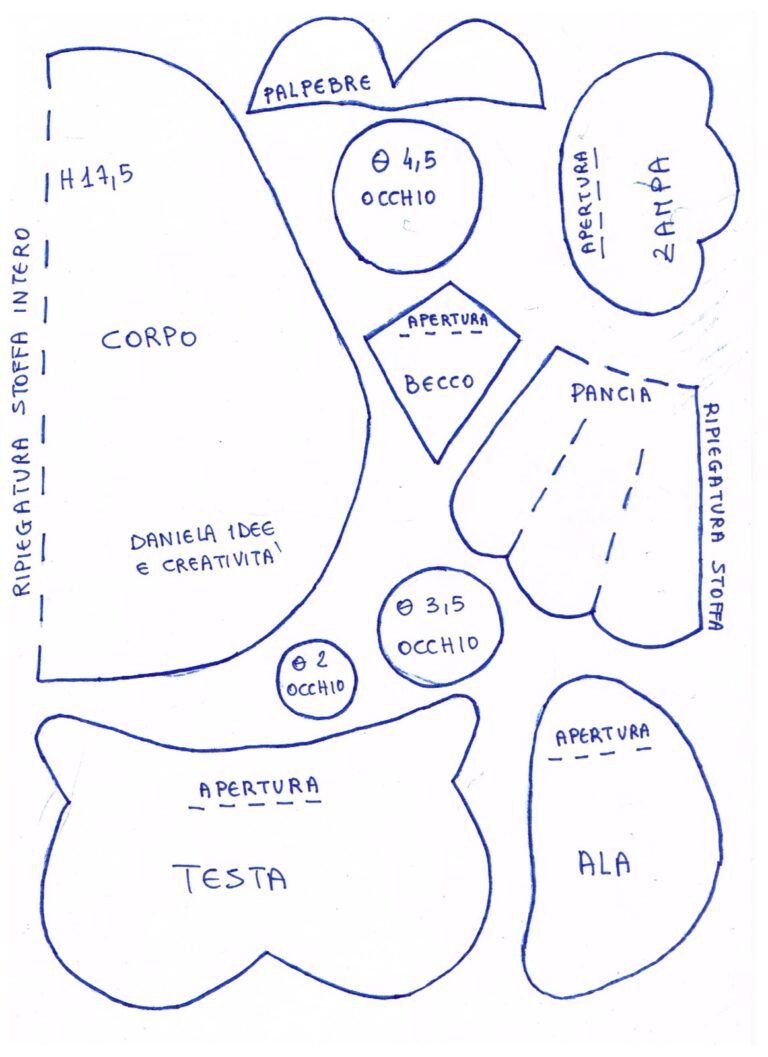 PALPEBRE
H 17,5
RIPIEGATURA STOFFA INTERO
CORPO
DANIELA IDEE
E CREATIVITA'
Θ 4,5
OCCHIO
APERTURA
ZAMPA
APERTURA
BECCO
PANCIA
RIPIEGATURA STOFFA
Θ 3,5
OCCHIO
Θ 2
OCCHIO
APERTURA
TESTA
APERTURA
ALA